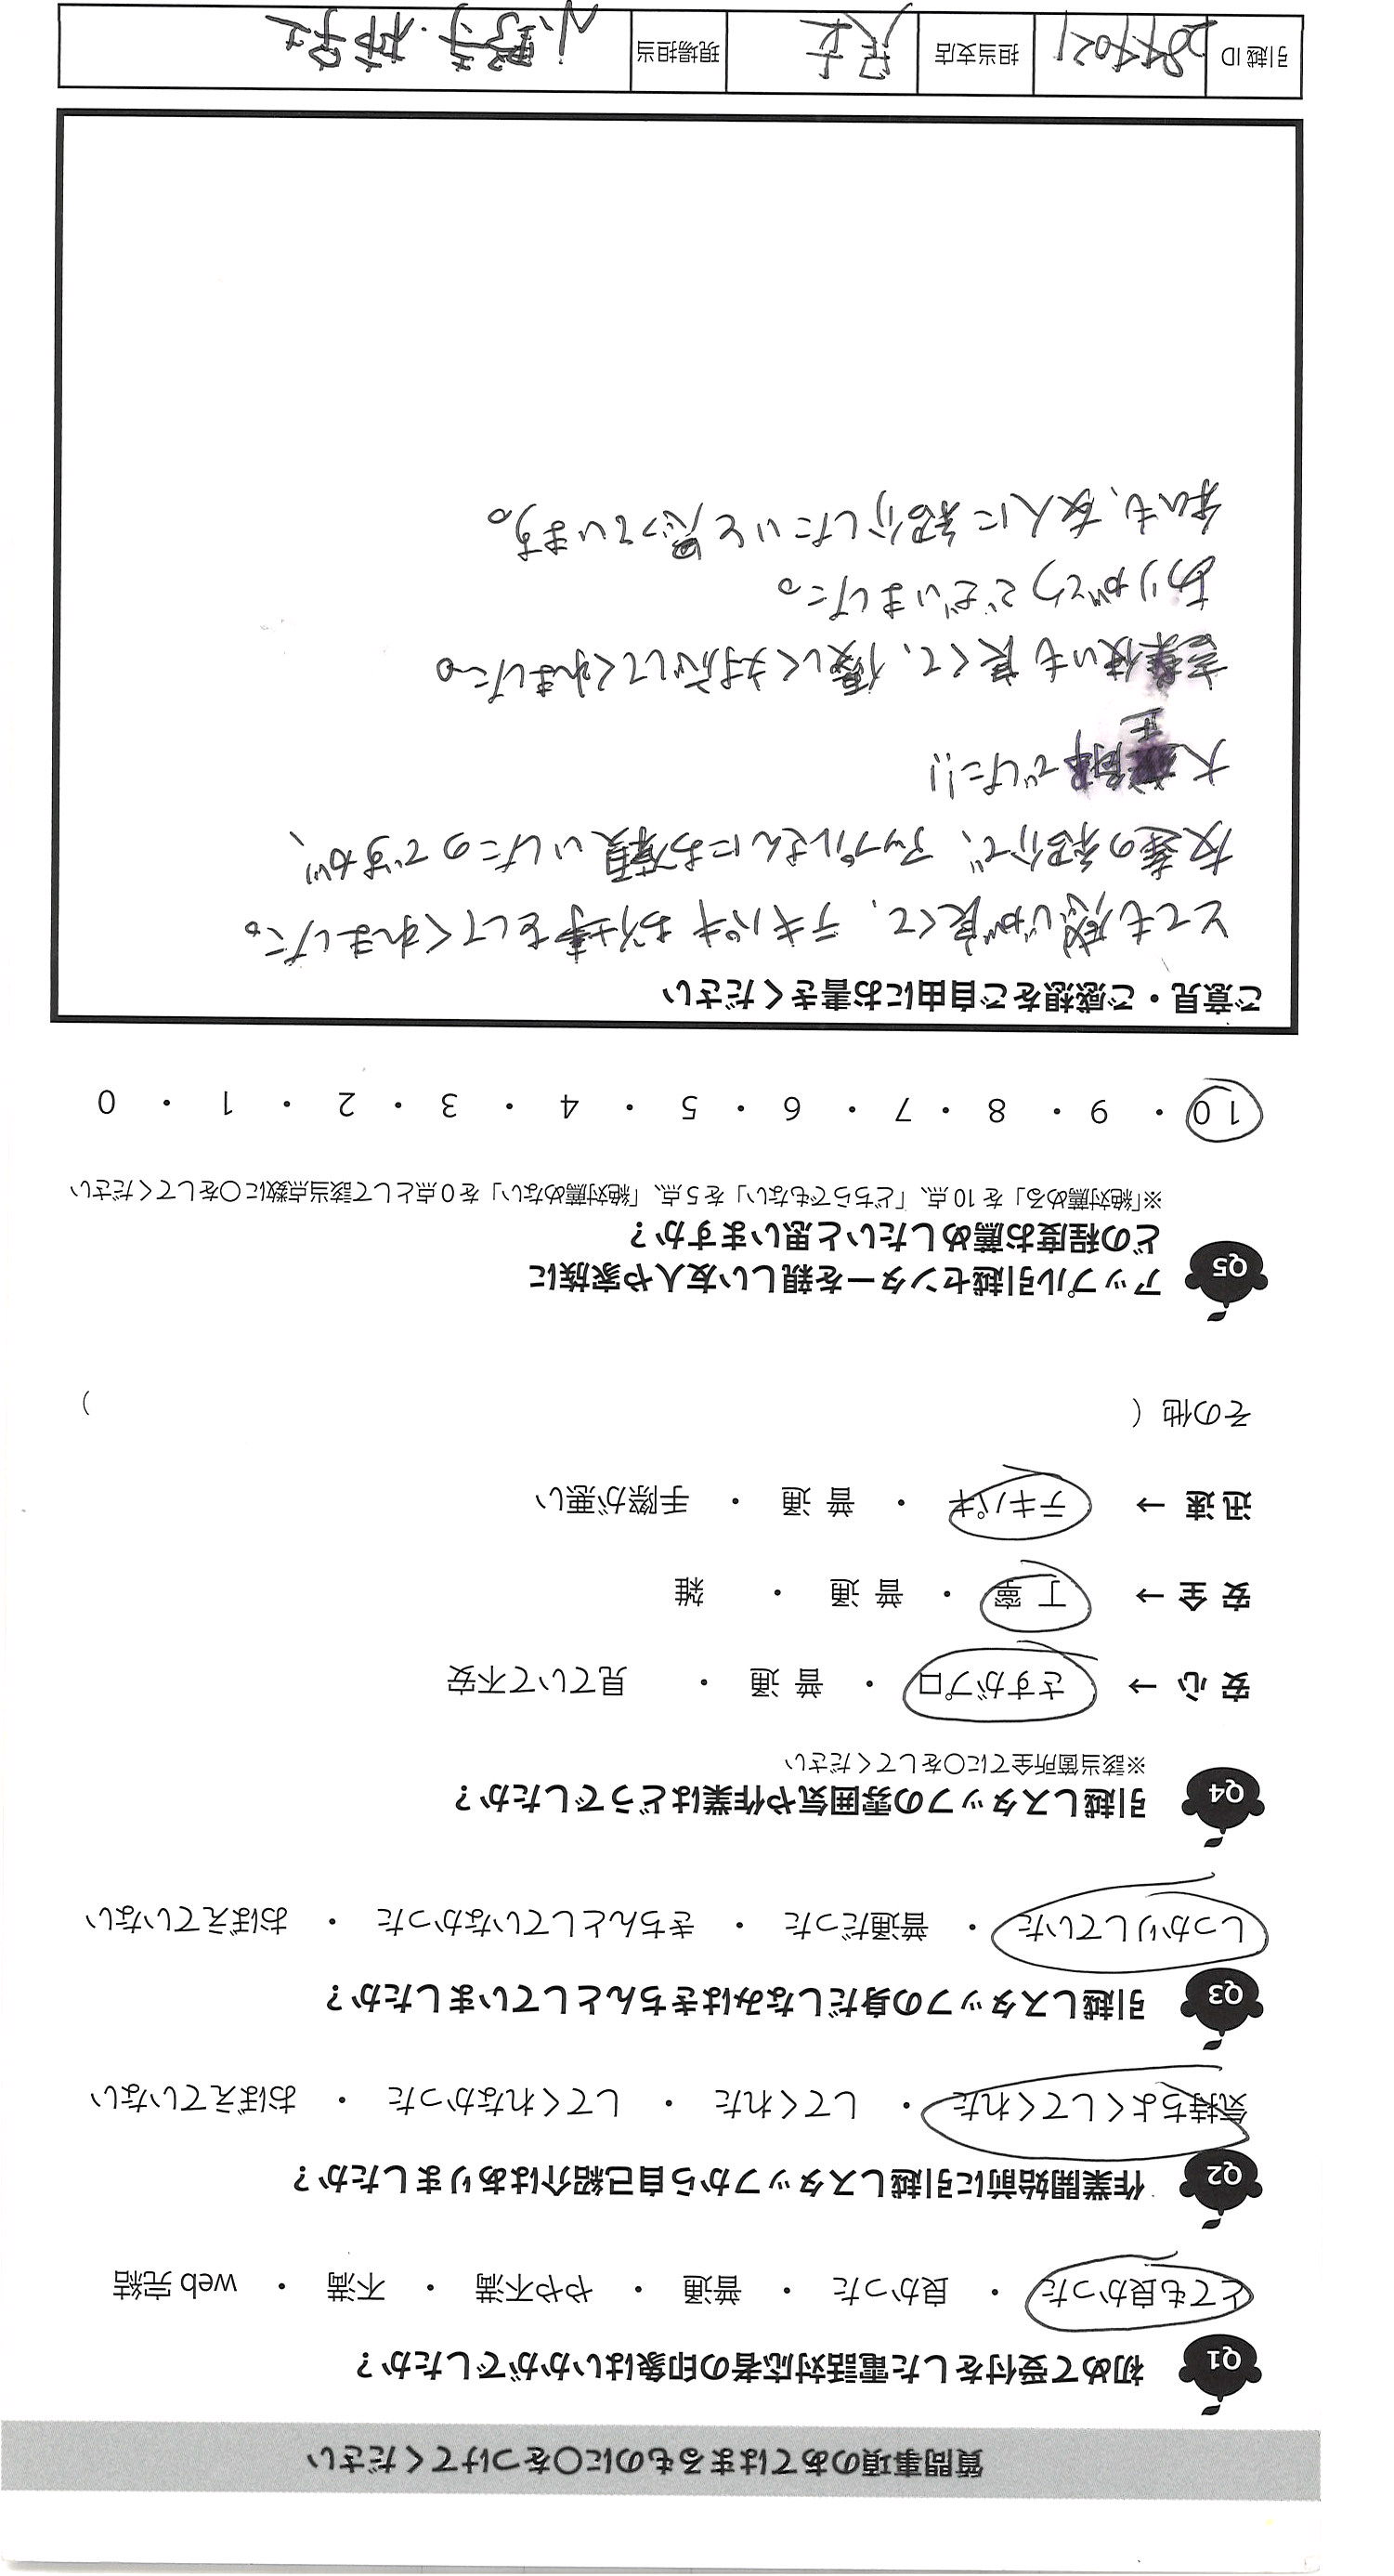 質問事項のあてはまるものに〇をつけてください
Q1 初めて受付をした電話対応者の印象はいかがでしたか？
とても良かった ・ 良かった ・ 普通 ・ やや不満 ・ 不満 ・ web 完結
Q2 作業開始前に引越しスタッフから自己紹介はありましたか？
気持ちよくしてくれた ・ してくれた ・ してくれなかった ・ おぼえていない
Q3 引越しスタッフの身だしなみはきちんとしていましたか？
しっかりしていた ・ 普通だった ・ きちんとしていなかった ・ おぼえていない
Q4 引越しスタッフの雰囲気や作業はどうでしたか？
※該当箇所全てに〇をしてください
安 心 → さすがプロ ・ 普 通 ・ 見ていて不安
安 全 → 丁 寧 ・ 普 通 ・ 雑
迅 速 → テキパキ ・ 普 通 ・ 手際が悪い
その他（ ）
Q5 アップル引越センターを親しい友人や家族に
どの程度お薦めしたいと思いますか？
※「絶対薦める」を 10 点、「どちらでもない」を 5 点、「絶対薦めない」を 0 点として該当点数に〇をしてください
10 ・ 9 ・ 8 ・ 7 ・ 6 ・ 5 ・ 4 ・ 3 ・ 2 ・ 1 ・ 0
ご意見・ご感想をご自由にお書きください
とても感じが良くて、テキパキお仕事をしてくれました。
友達の紹介で、アップルさんにお願いしたのですが、
大正解でした!!
言葉使いも良くて、優しく対応してくれました。
ありがとうございました。
私も、友人に紹介したいと思っています。
引越 ID 担当支店 現場担当 小野寺・柿